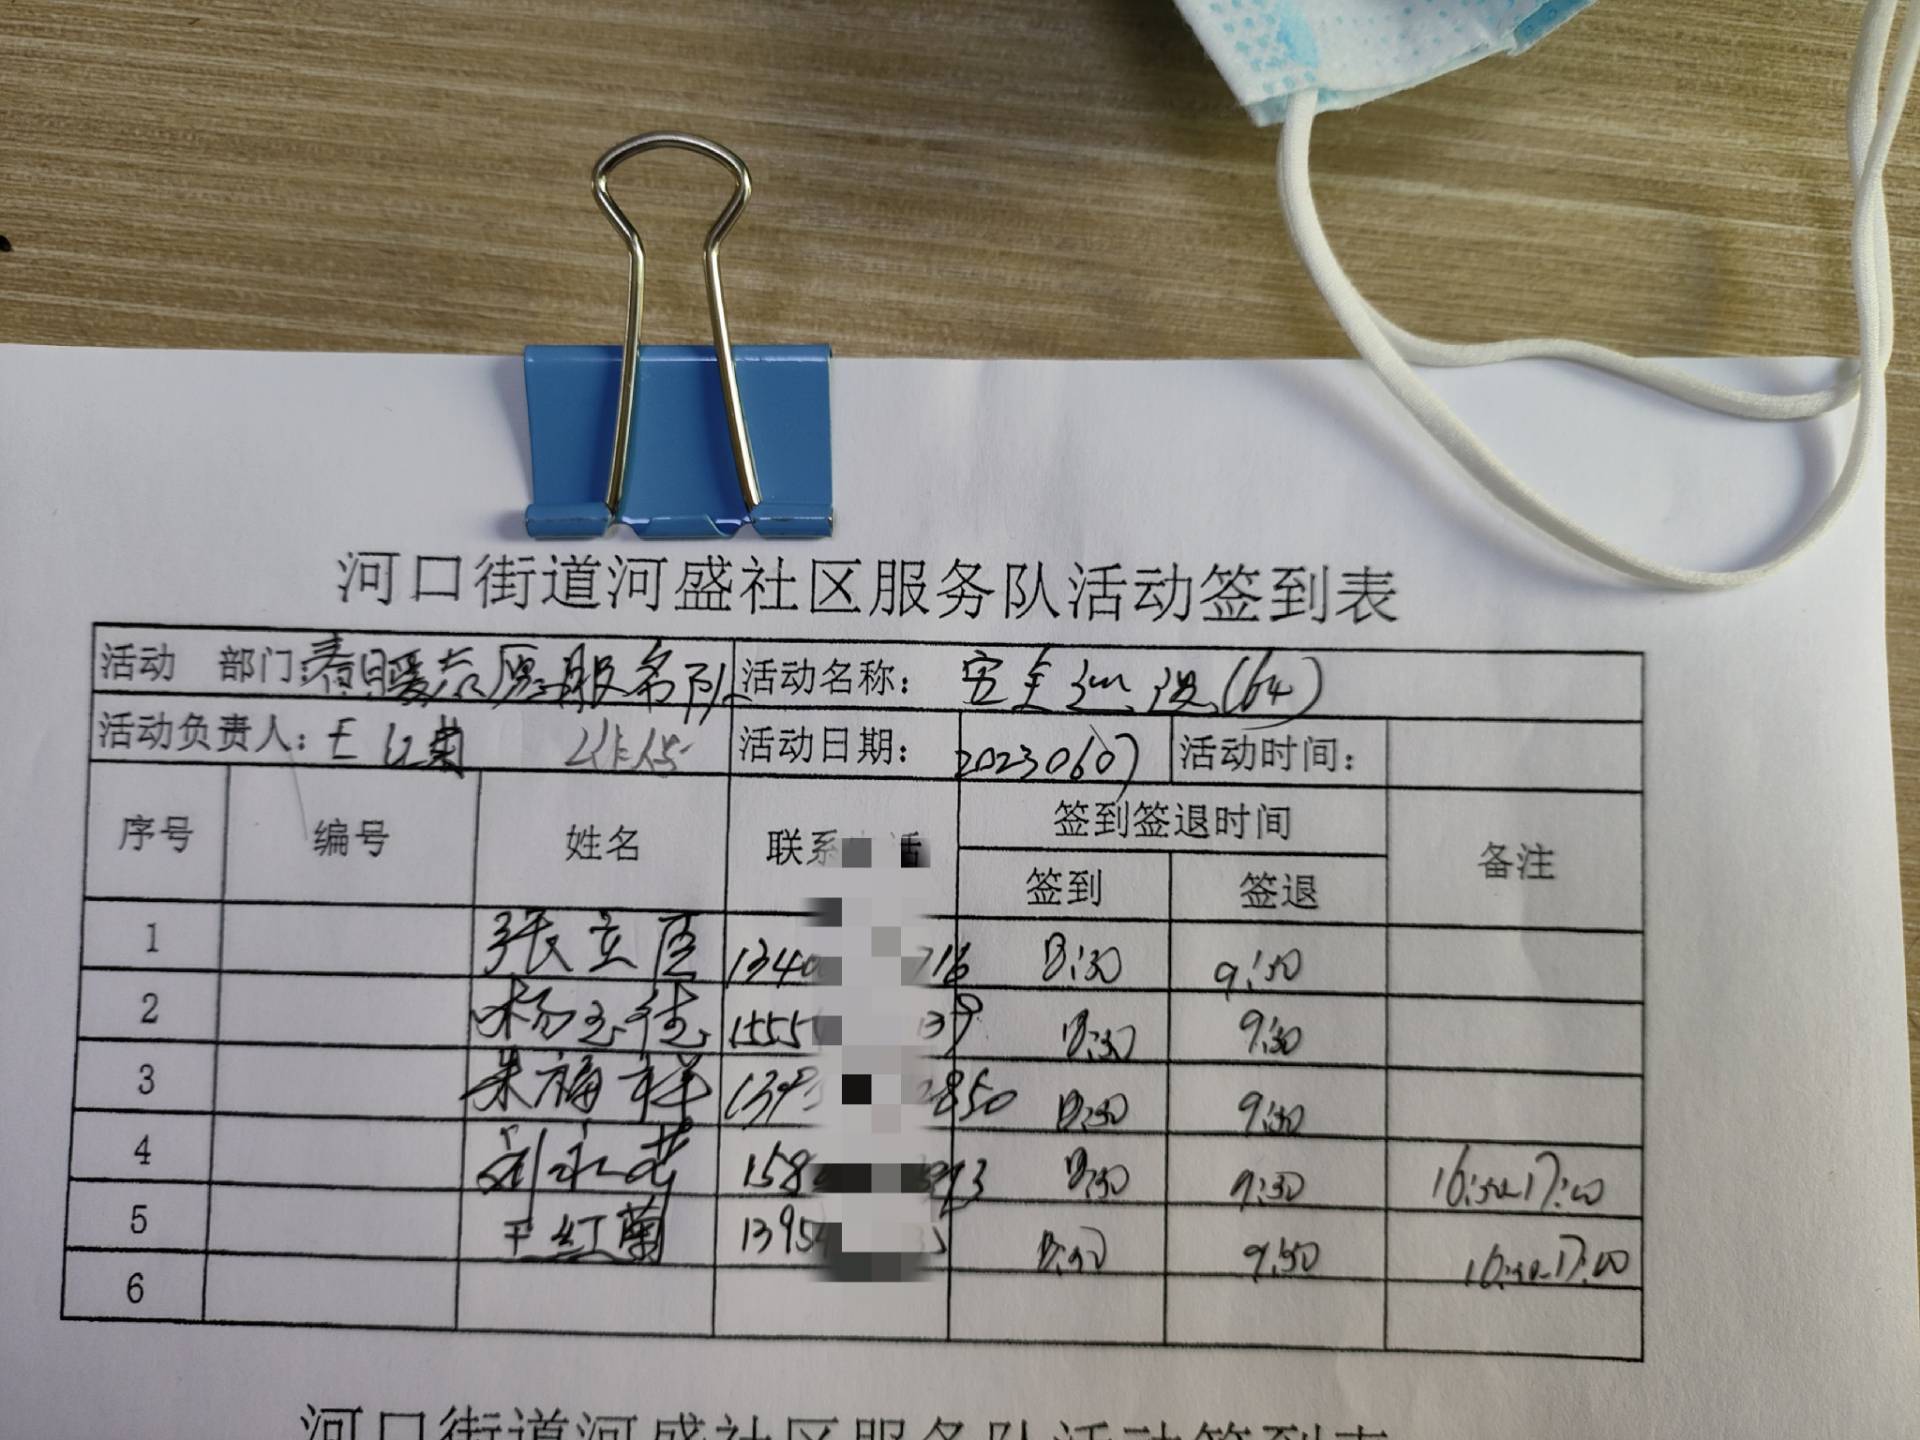 河口街道河盛社区服务队活动签到表
活动 部门:春日暖志愿服务队 活动名称: 安全巡逻(64)
活动负责人: 王红菊 活动日期: 20230607 活动时间:
序号 编号 姓名 联系 话 签到签退时间 备注
签到 签退
1 张立臣 134 716 8:30 9:30
2 杨玉德 1555 139 8:30 9:30
3 朱福祥 139 2850 8:30 9:30
4 刘永花 158 993 8:30 9:30 16:30-17:00
5 王红菊 1395 8:30 9:30 16:30-17:00
6
河口街道河盛社区服务队活动签到表